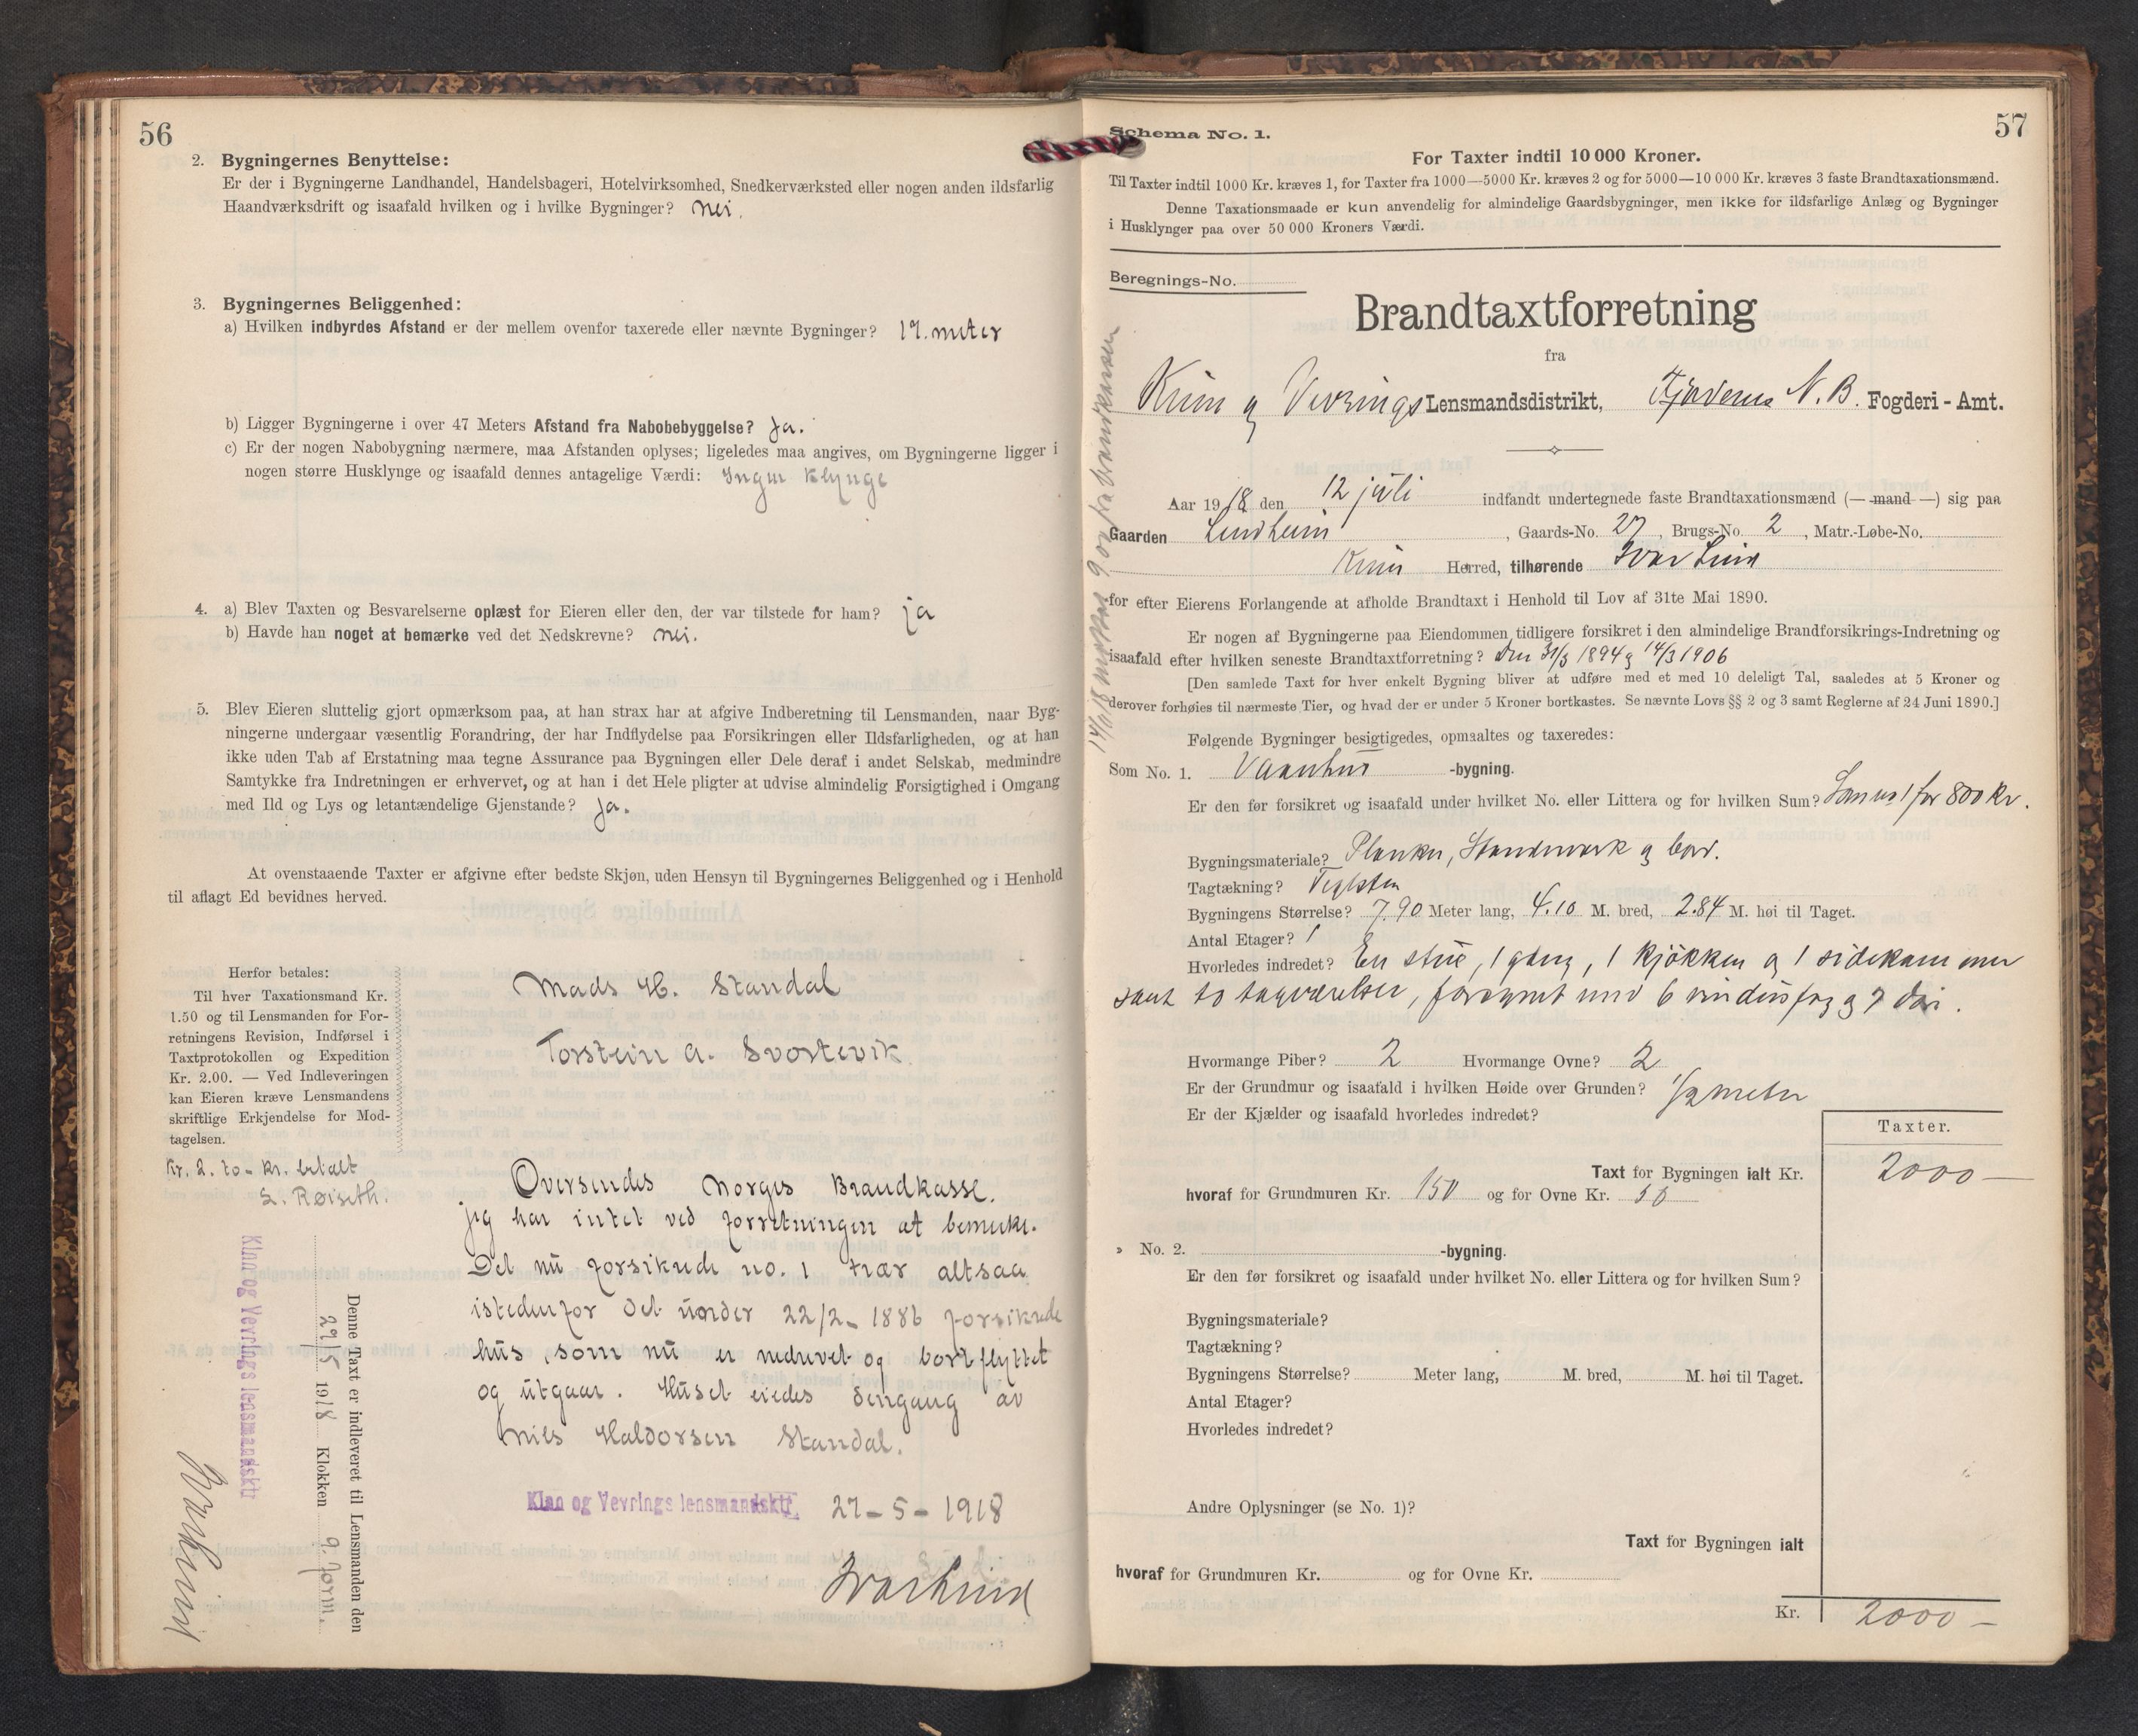 56
2. Bygningernes Benyttelse:
Er der i Bygningerne Landhandel, Handelsbageri, Hotelvirksomhed, Snedkerværksted eller nogen anden ildsfarlig
Haandværksdrift og isaafald hvilken og i hvilke Bygninger? nei.
3. Bygningernes Beliggenhed:
a) Hvilken indbyrdes Afstand er der mellem ovenfor taxerede eller nævnte Bygninger? 17. meter
b) Ligger Bygningerne i over 47 Meters Afstand fra Nabobebyggelse? Ja.
c) Er der nogen Nabobygning nærmere, maa Afstanden oplyses; ligeledes maa angives, om Bygningerne ligger i
nogen større Husklynge og isaafald dennes antagelige Værdi: Ingen klynge
4. a) Blev Taxten og Besvarelserne oplæst for Eieren eller den, der var tilstede for ham? ja
b) Havde han noget at bemærke ved det Nedskrevne? nei.
5. Blev Eieren sluttelig gjort opmærksom paa, at han strax har at afgive Indberetning til Lensmanden, naar Byg-
ningerne undergaar væsentlig Forandring, der har Indflydelse paa Forsikringen eller Ildsfarligheden, og at han
ikke uden Tab af Erstatning maa tegne Assurance paa Bygningen eller Dele deraf i andet Selskab, medmindre
Samtykke fra Indretningen er erhvervet, og at han i det Hele pligter at udvise almindelig Forsigtighed i Omgang
med Ild og Lys og letantændelige Gjenstande? Ja.
At ovenstaaende Taxter er afgivne efter bedste Skjøn, uden Hensyn til Bygningernes Beliggenhed og i Henhold
til aflagt Ed bevidnes herved.
Herfor betales:
Til hver Taxationsmand Kr.
1.50 og til Lensmanden for For-
retningens Revision, Indførsel i
Taxtprotokollen og Expedition
Kr. 2.00. — Ved Indleveringen
kan Eieren kræve Lensmandens
skriftlige Erkjendelse for Mod-
tagelsen.
Kr. 2. to - kr. betalt
L. Røiseth.
Mads H. Standal
Torstein A. Svortevik
Oversendes Norges Brandkasse.
jeg har intet ved forretningen at bemerke.
Det nu forsikrede no. 1 trær altsaa
istedenfor det under 22/2- 1886 forsikrede
hus, som nu er nedrevet og bortflyttet
og utgaar. Huset eiedes dengang av
Nils Haldorsen Standal.
Kinn og Vevrings lensmandsktr. 27-5-1918
Ivar Lind
Denne Taxt er indleveret til Lensmanden den
29/5 1918 Klokken 9. form.
Kinn og Vevrings lensmandsktr
Ivar Lind
57
Schema No. 1.
For Taxter indtil 10 000 Kroner.
Til Taxter indtil 1000 Kr. kræves 1, for Taxter fra 1000—5000 Kr. kræves 2 og for 5000—10 000 Kr. kræves 3 faste Brandtaxationsmænd.
Denne Taxationsmaade er kun anvendelig for almindelige Gaardsbygninger, men ikke for ildsfarlige Anlæg og Bygninger
i Husklynger paa over 50 000 Kroners Værdi.
Beregnings-No.
Brandtaxtforretning
fra
Kinn og Vevrings Lensmandsdistrikt, Fjordene N. B. Fogderi - Amt.
Aar 1918 den 12 juli indfandt undertegnede faste Brandtaxationsmænd (— mand —) sig paa
Gaarden Lindheim, Gaards-No. 27, Brugs-No. 2, Matr.-Løbe-No.
Kinn Herred, tilhørende Ivar Lind
for efter Eierens Forlangende at afholde Brandtaxt i Henhold til Lov af 31te Mai 1890.
Er nogen af Bygningerne paa Eiendommen tidligere forsikret i den almindelige Brandforsikrings-Indretning og
isaafald efter hvilken seneste Brandtaxtforretning? den 31/3 1894 og 14/3 1906
[Den samlede Taxt for hver enkelt Bygning bliver at udføre med et med 10 deleligt Tal, saaledes at 5 Kroner og
derover forhøies til nærmeste Tier, og hvad der er under 5 Kroner bortkastes. Se nævnte Lovs §§ 2 og 3 samt Reglerne af 24 Juni 1890.]
Følgende Bygninger besigtigedes, opmaaltes og taxeredes:
Som No. 1. Vaanhus -bygning.
Er den før forsikret og isaafald under hvilket No. eller Littera og for hvilken Sum? Som no 1 for 800 kr.
Bygningsmateriale? Planker, Standverk og bord.
Tagtækning? Teglsten
Bygningens Størrelse? 7.90 Meter lang, 4.10 M. bred, 2.84 M. høi til Taget.
Antal Etager? 1
Hvorledes indredet? En stue, 1 gang, 1 kjøkken og 1 sidekammer
samt to tagværelser, forsynet med 6 vindusfag og 7 dør.
Hvormange Piber? 2 Hvormange Ovne? 2
Er der Grundmur og isaafald i hvilken Høide over Grunden? 1/2 meter
Er der Kjælder og isaafald hvorledes indredet?
Taxter.
Taxt for Bygningen ialt Kr. 2000 —
hvoraf for Grundmuren Kr. 150 og for Ovne Kr. 50
» No. 2. -bygning.
Er den før forsikret og isaafald under hvilket No. eller Littera og for hvilken Sum?
Bygningsmateriale?
Tagtækning?
Bygningens Størrelse? Meter lang, M. bred, M. høi til Taget.
Antal Etager?
Hvorledes indredet?
Andre Oplysninger (se No. 1)?
Taxt for Bygningen ialt
hvoraf for Grundmuren Kr. og for Ovne Kr.
Kr. 2000 —